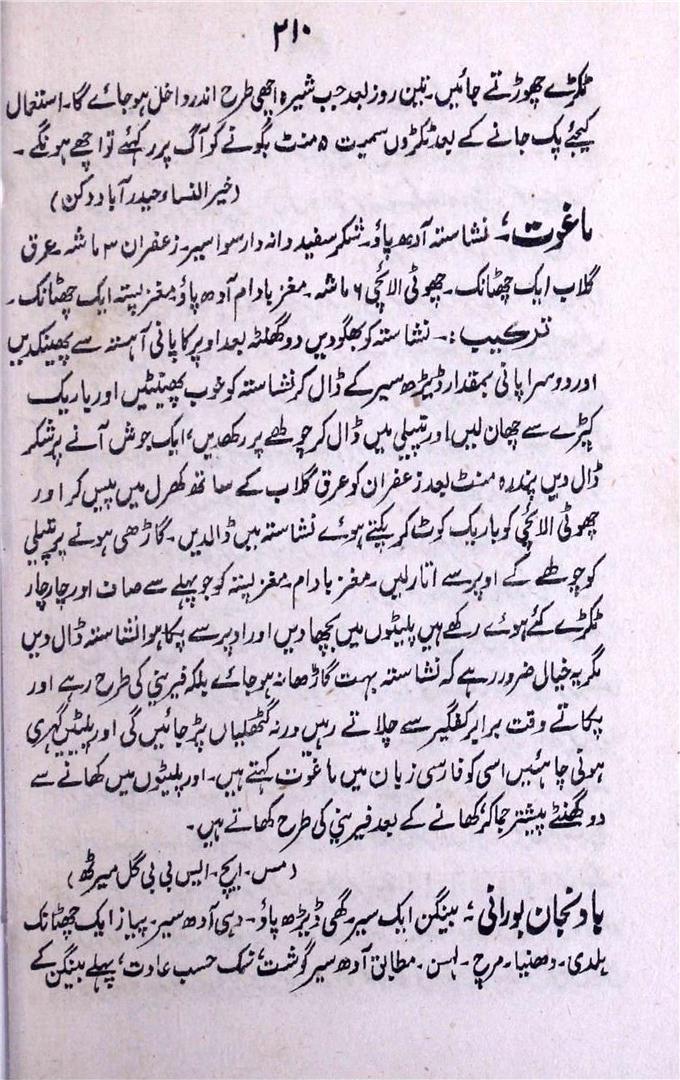 ۲۱۰
ٹکڑے چھوڑتے جائیں۔ تین روز بعد جب شیرہ اچھی طرح اندر داخل ہو جائے گا۔ استعمال
کیجئے پک جانے کے بعد ٹکڑوں سمیت ۵ منٹ بگونے کو آگ پر رکھئے تو اچھے ہونگے۔
(خیر النساء حیدر آباد دکن)
ماغوت، نشاستہ آدھ پاؤ۔ شکر سفید دانہ دار سوا سیر۔ زعفران ۳ ماشہ۔ عرق
گلاب ایک چھٹانک۔ چھوٹی الائچی ۶ ماشہ۔ مغز بادام آدھ پاؤ مغز پستہ ایک چھٹانک۔
ترکیب:۔ نشاستہ کو بھگو دیں دو گھنٹہ بعد اوپر کا پانی آہستہ سے پھینکدیں
اور دوسرا پانی بمقدار ڈیڑھ سیر کے ڈال کر نشاستہ کو خوب پھینٹیں اور باریک
کپڑے سے چھان لیں اور تپیلی میں ڈال کر چولھے پر رکھدیں، ایک جوش آنے پر شکر
ڈال دیں پندرہ منٹ بعد زعفران کو عرق گلاب کے ساتھ کھرل میں پیس کر اور
چھوٹی الائچی کو باریک کوٹ کر پکتے ہوئے نشاستہ میں ڈالدیں۔ گاڑھی ہونے پر تپیلی
کو چولھے کے اوپر سے اتار لیں۔ مغز بادام۔ مغز پستہ کو جو پہلے سے صاف اور چار چار
ٹکڑے کئے ہوئے رکھے ہیں پلیٹوں میں بچھا دیں اور اوپر سے پکا ہوا نشاستہ ڈال دیں
مگر یہ خیال ضرور رہے کہ نشاستہ بہت گاڑھا نہ ہو جائے بلکہ فیرنی کی طرح رہے اور
پکاتے وقت برابر کفگیر سے چلاتے رہیں ورنہ گٹھلیاں پڑ جائیں گی اور پلیٹیں گہری
ہونی چاہئیں اسی کو فارسی زبان میں ماغوت کہتے ہیں۔ اور پلیٹوں میں کھانے سے
دو گھنٹے پیشتر جما کر، کھانے کے بعد فیرنی کی طرح کھاتے ہیں۔
(مس۔ ایچ۔ ایس بی بی گل میرٹھ)
بادنجان بورانی، بینگن ایک سیر۔ گھی ڈیڑھ پاؤ۔ دہی آدھ سیر۔ پیاز ایک چھٹانک
ہلدی۔ دھنیا۔ مرچ۔ لہسن۔ مطابق آدھ سیر گوشت، نمک حسب عادت، پہلے بینگن کے